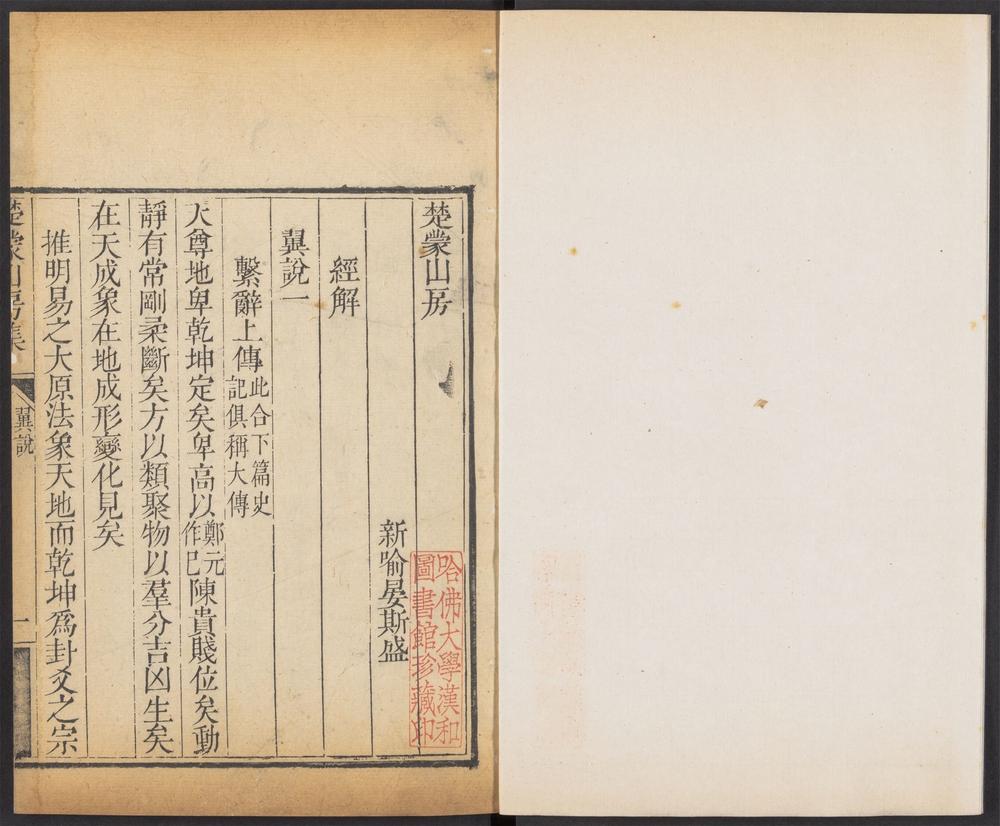 楚蒙山房
哈佛大學漢和
圖書館珍藏印
新喻晏斯盛
經解
翼說一
繫辭上傳此合下篇史記俱稱大傳
天尊地卑乾坤定矣卑高以鄭元作已陳貴賤位矣動
靜有常剛柔斷矣方以類聚物以羣分吉凶生矣
在天成象在地成形變化見矣
推明易之大原法象天地而乾坤為卦爻之宗
楚蒙山房集
翼說
一